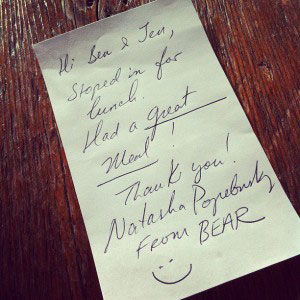 Hi Ben & Jen,
Stoped in for
lunch.
Had a great
Meal!
Thank you!
Natasha
From BEAR